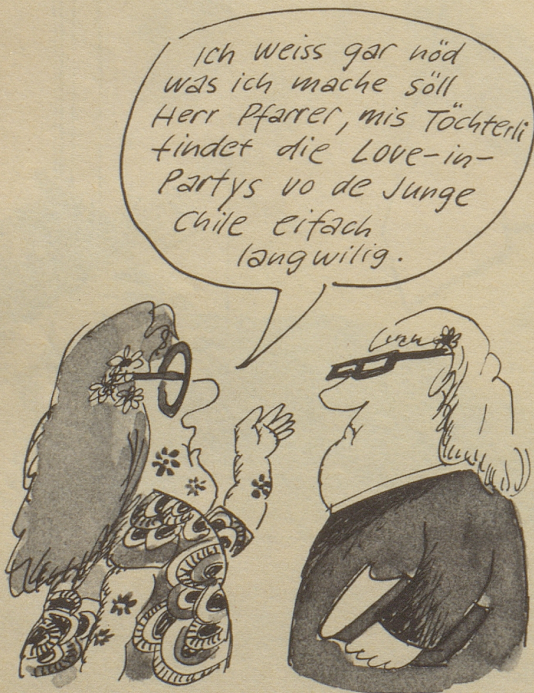 Ich weiss gar nöd
was ich mache söll
Herr Pfarrer, mis Töchterli
findet die Love-in-
Partys vo de Junge
Chile eifach
langwilig.